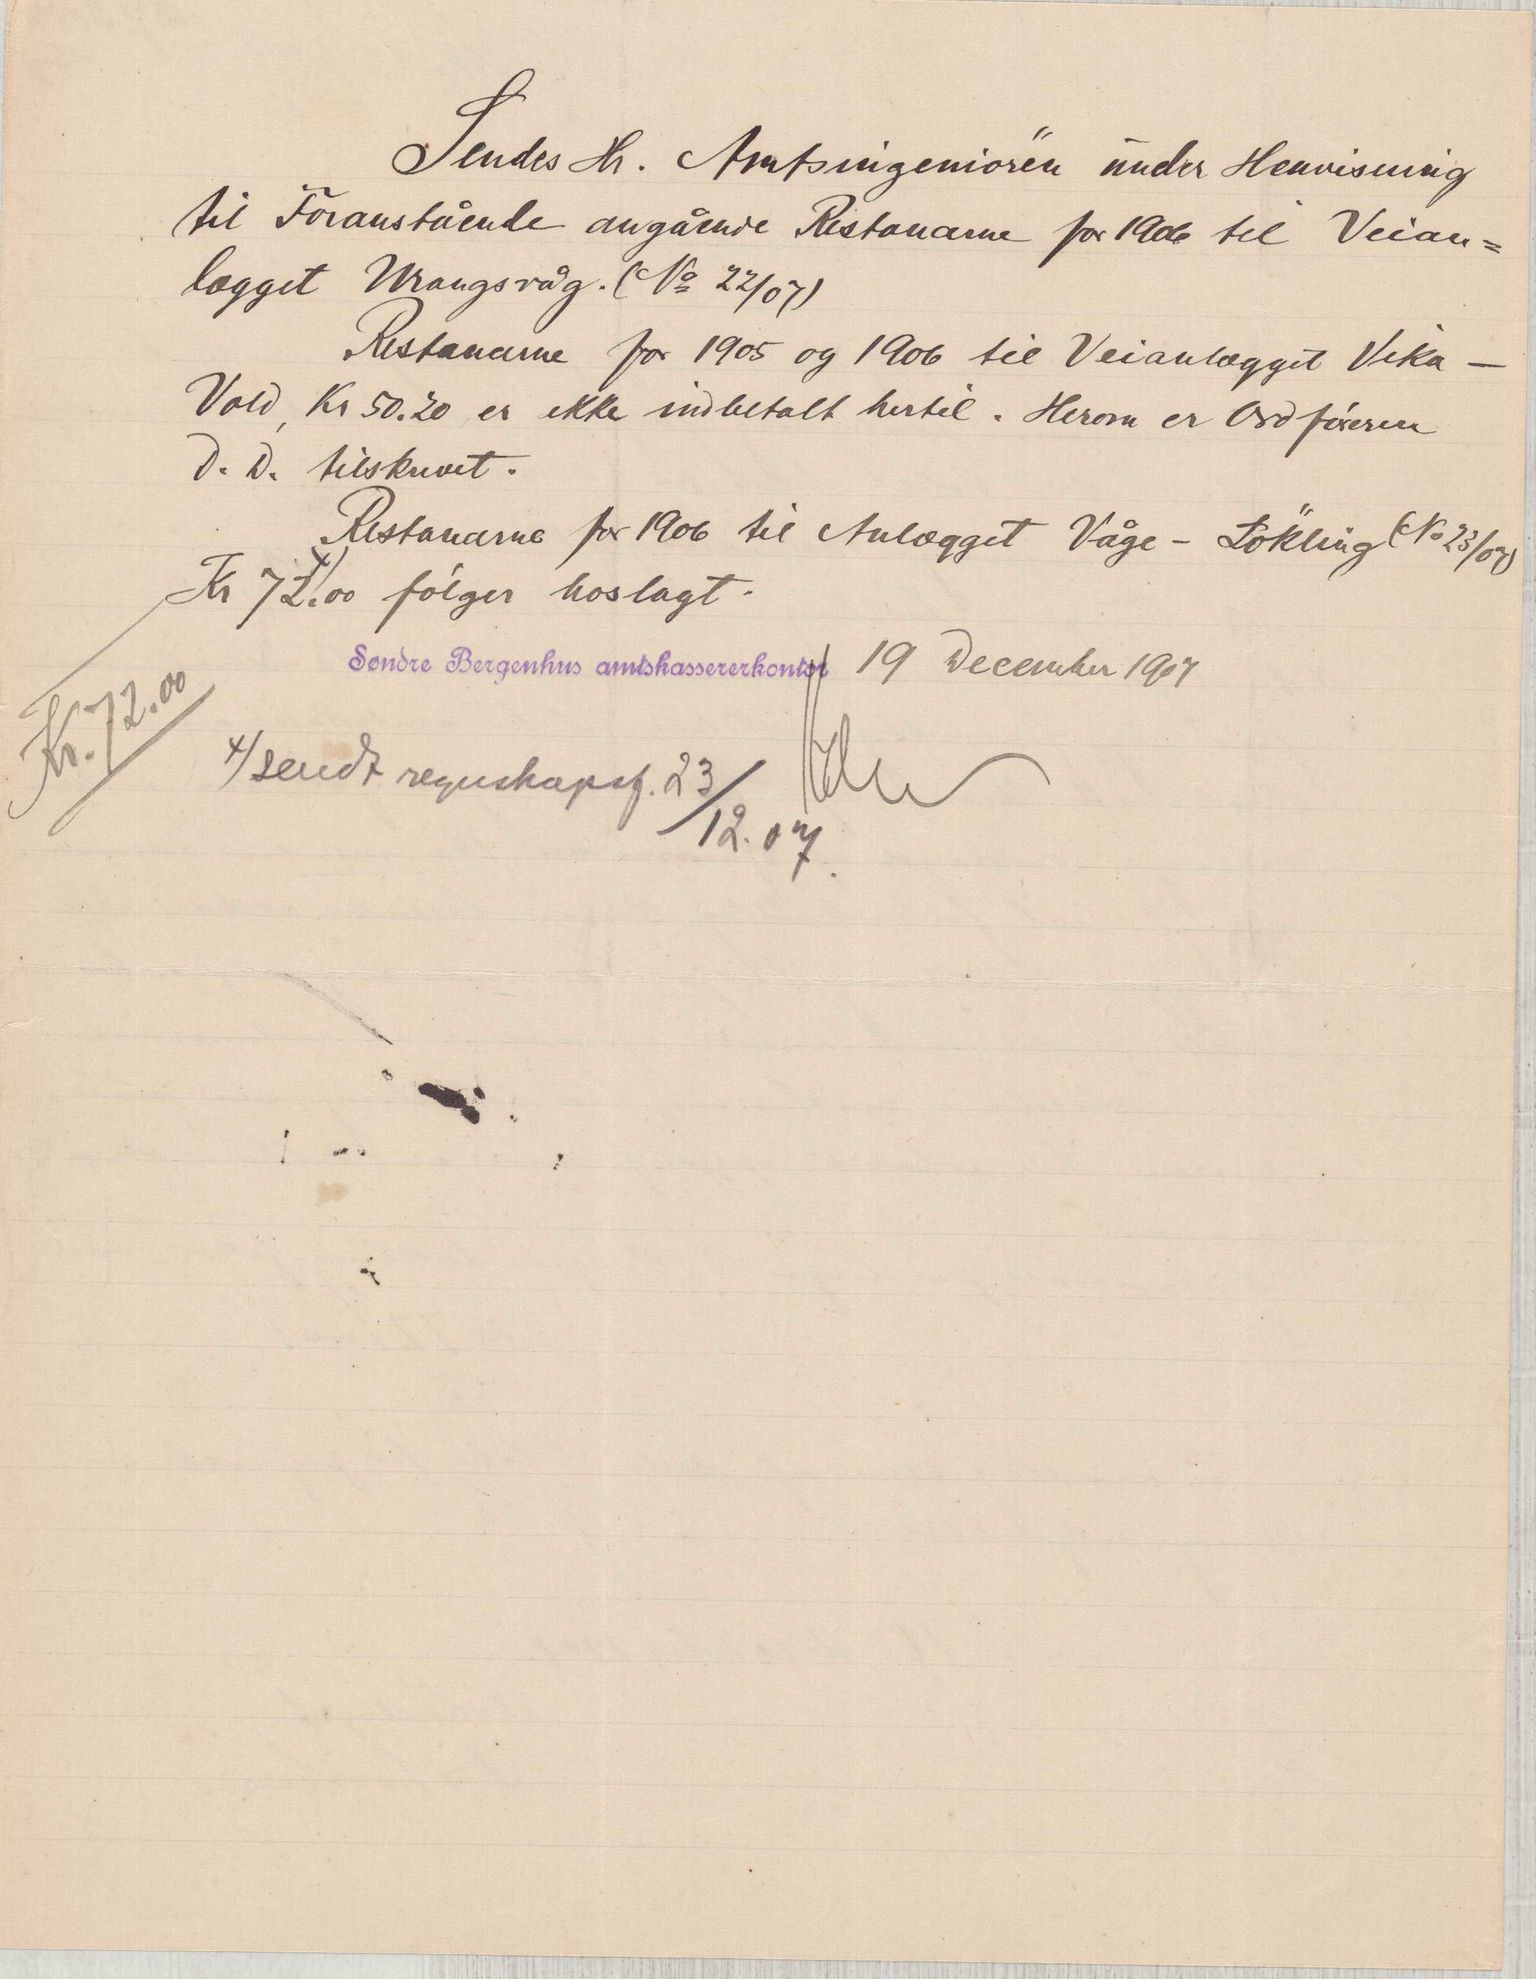 Sendes Hr. Amtsingeniören under Henvisning
til Foranstående angående Restanserne for 1906 til Veian=
lægget Vrangsvåg. (No 22/07)
Restanserne for 1905 og 1906 til Veianlægget Vika —
Vold, Kr 50.20 er ikke indbetalt hertil. Herom er Ordföreren
D. D. tilskrevet.
Restanserne for 1906 til Anlægget Våge - Lökling (No 23/07)
Kr 72.00 x) fölger hoslagt.
Søndre Bergenhus amtskassererkontor 19 December 1907
Kr. 72.00
x/ sendt regnskapsf. 23/12.07.